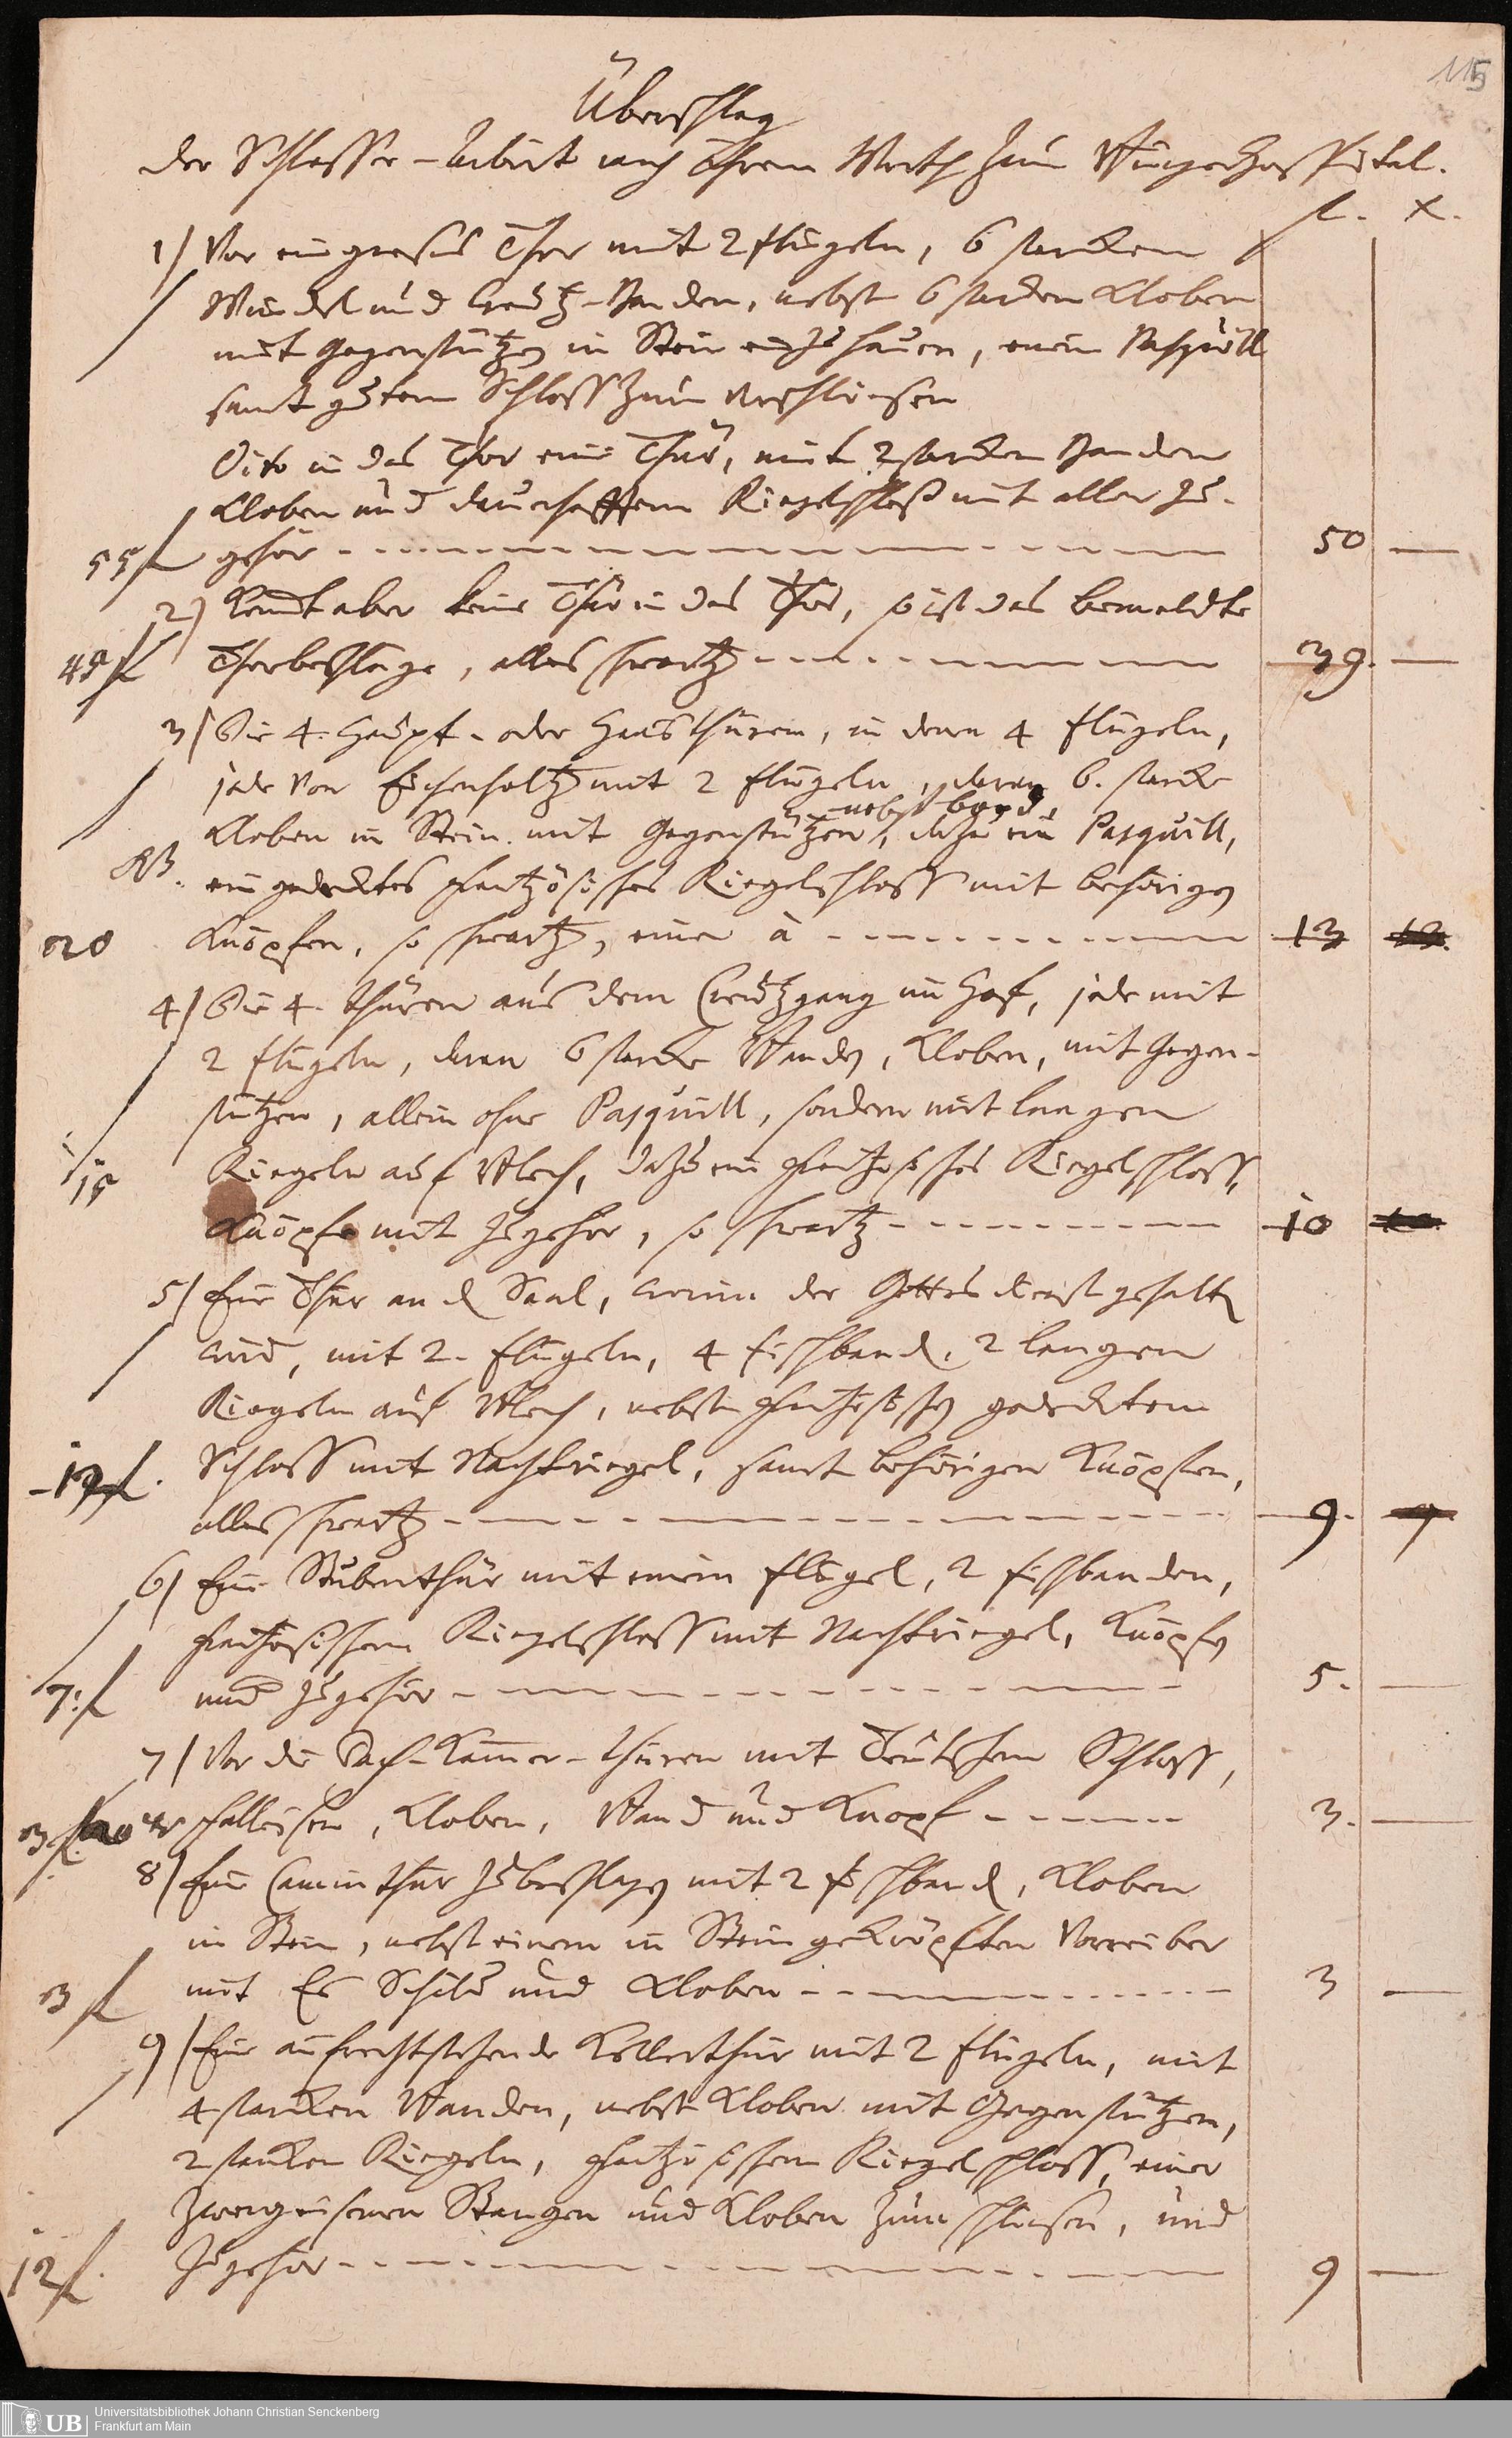 115
Überschlag
der Schlosser-Arbeit nach Ihrem Werth zum Bürgerhosspital.
fl. x.
1) Vor ein groses Thor mit 2 flügeln, 6 starcken
Winckel und Creutz-Banden, nebst 6 starcken Kloben
mit Gegenstützen in Stein zu hauen, einem Pasquill
samt gutem Schloss zum verschliesen
Dito in das Thor eine Thür, mit 2 starcken Banden
Kloben und dauerhafftem Riegelschloß mit aller Zu-
55 fl gehör 50 —
2) Kommt aber keine Thür in das Thor, so ist das bemeldte
45 fl Thorbeschläge, alles schwartz 39. —
3) Die 4. Haupt- oder Hausthüren, in denen 4 flügeln,
jede von Eichenholtz mit 2 flügeln, daran 6. starcke
nebst band,
Kloben in Stein mit Gegenstützen, dazu ein Pasquill,
NB. ein gedecktes frantzösisches Riegelschloss mit behörigen
20 Knöpfen, so schwartz, eine à 13
4) Die 4. thüren aus dem Creutzgang im Hof, jede mit
2 flügeln, daran 6 starcke Banden, Kloben, mit Gegen-
stützen, allein ohne Pasquill, sondern mit langen
15 Riegeln auf Blech, dazu ein frantzösisches Riegelschloss,
Knöpfe mit Zugehör, so schwartz 10
5) Eine Thür an den Saal, worinn der Gottesdienst gehalten
wird, mit 2. flügeln, 4 fischband, 2 langen
Riegeln auf Blech, nebst frantzösischen gedecktem
12 fl. Schloss mit Nachtriegel, samt behörigen Knöpfen,
alles schwartz 9.
6) Eine Stubenthür mit einem flügel, 2 fischbanden,
frantzösischem Riegelschloss mit Nachtriegel, Knöpfen
7. fl und Zugehör 5. —
7) Vor die Dach-Kammer-thüren mit Teutschem Schloss,
3 fl. falleisen, Kloben, Band und Knopf 3. —
8) Eine Camin thür zu beschlagen mit 2 fischband, Kloben
in Stein, nebst einem in Stein gekröpften Vorreiber
3 fl mit Es Schild und Kloben 3 —
9) Eine aufrechtstehende Kellerthür mit 2 flügeln, mit
4 starcken Banden, nebst Kloben mit Gegenstützen,
2 starcken Riegeln, frantzösischem Riegelschloss, einer
eisernen Stangen und Kloben zum schliesen, und
12 fl. Zugehör 9 —
UB Universitätsbibliothek Johann Christian Senckenberg
Frankfurt am Main